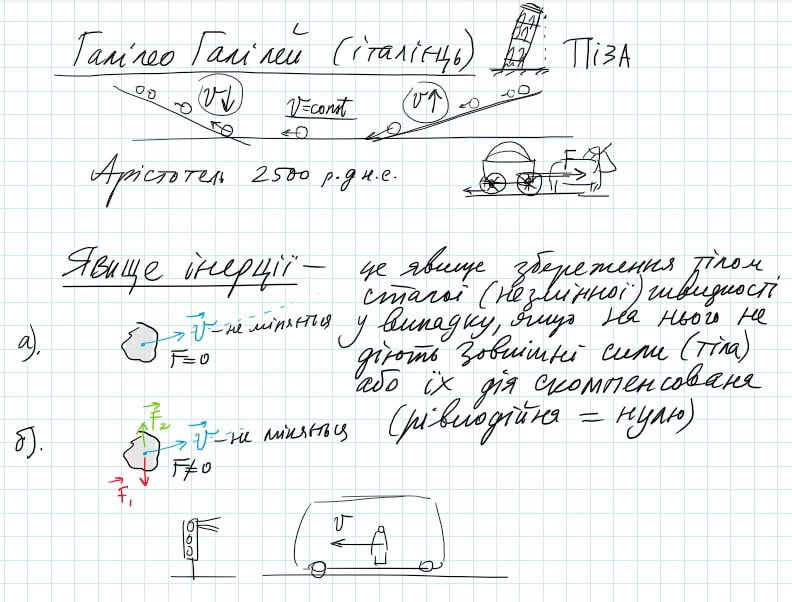 Галілео Галілей (італінць) ПІЗА
v↓ v=const v↑
Арістотель 2500 р.д н.е. F
Явище інерції — це явище збереження тілом
сталої (незмінної) швидкості
а). v – не міняться у випадку, якщо на нього не
F=0 діють зовнішні сили (тіла)
або їх дія скомпенсована
F₂ (рівнодійна = нулю)
б). v – не міняться
F≠0
F₁
v